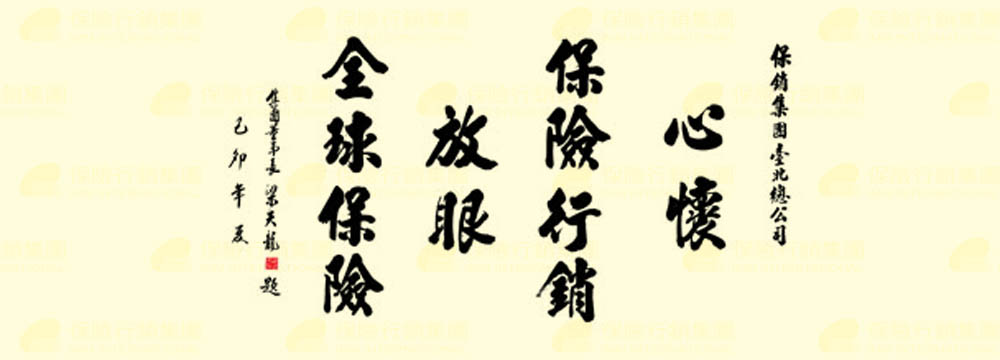 保銷集團臺北總公司
心懷
保險行銷
放眼
全球保險
集團董事長梁天龍題
己卯年夏
保險行銷集團